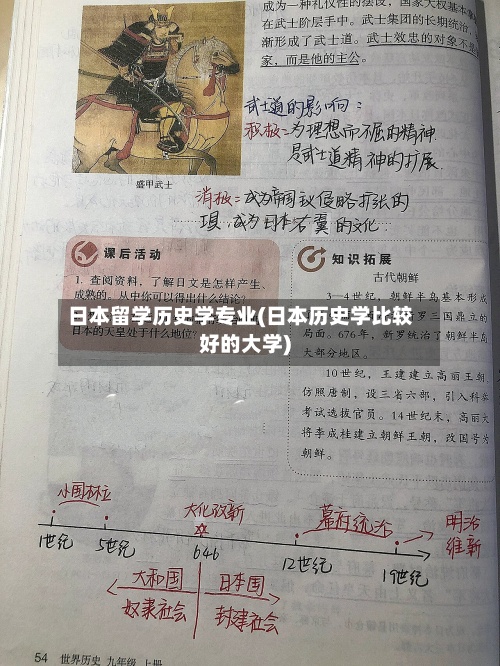 成为一种礼仪性的摆设，国家大权基本
在武士阶层手中。武士集团的长期统治，
渐形成了武士道。武士效忠的对象不是
家，而是他的主公。
武士道的影响：
积极：为理想而不屈的精神
是武士道精神的扩展
盛甲武士
消极：成为帝国议侵略扩张的
成为日本右翼的文化
课后活动
1. 查阅资料，了解日文是怎样产生、
成熟的。从中你可以得出什么结论？
日本的天皇处于什么地位？
知识拓展
古代朝鲜
3—4世纪，朝鲜半岛基本形成
罗三国鼎立的
局面。676年，新罗统治了朝鲜半岛
大部分地区。
10世纪，王建建立高丽王朝，
仿照唐制，设三省六部，引入科举
考试选拔官员。14世纪末，高丽大
将李成桂建立朝鲜王朝，改国号为
朝鲜。
日本留学历史学专业(日本历史学比较
好的大学)
小国林立
大化改新
幕府统治
明治
维新
1世纪
5世纪
646
12世纪
19世纪
大和国
日本国
奴隶社会
封建社会
54 世界历史 九年级 上册